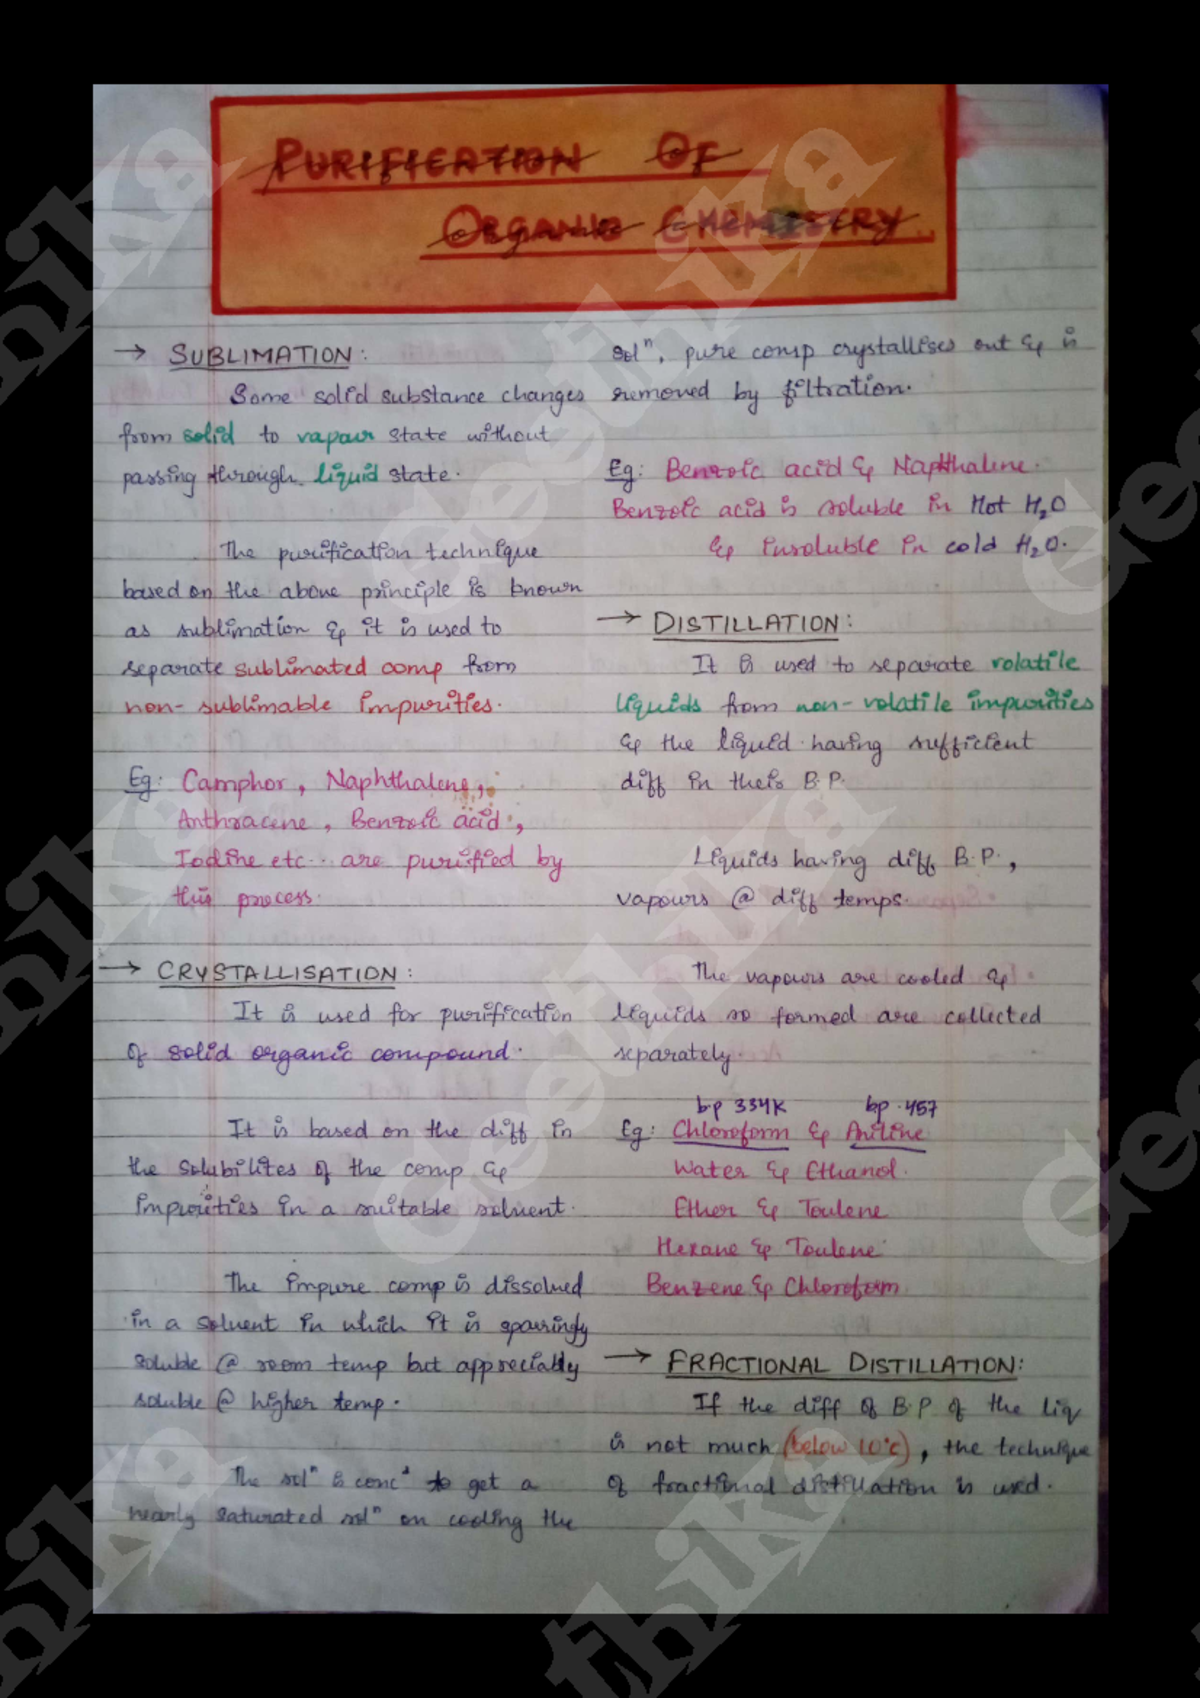 PURIFICATION OF
ORGANIC CHEMISTRY.
→ SUBLIMATION:
Some solid substance changes
from solid to vapour state without
passing through liquid state.
The purification technique
based on the above principle is known
as sublimation & it is used to
separate sublimated comp from
non-sublimable impurities.
Eg: Camphor, Naphthalene,
Anthracene, Benzoic acid,
Iodine etc... are purified by
this process.
→ CRYSTALLISATION:
It is used for purification
of solid organic compound.
It is based on the diff in
the solubilites of the comp &
impurities in a suitable solvent.
The impure comp is dissolved
in a solvent in which it is sparingly
soluble @ room temp but appreciably
soluble @ higher temp.
The solⁿ is concᵈ to get a
nearly saturated solⁿ on cooling the
solⁿ, pure comp crystallises out & is
removed by filtration.
Eg: Benzoic acid & Naphthalene.
Benzoic acid is soluble in Hot H₂O
& insoluble in cold H₂O.
→ DISTILLATION:
It is used to separate volatile
liquids from non-volatile impurities
& the liquid having sufficient
diff in their B.P.
Liquids having diff B.P.,
vapours @ diff temps.
The vapours are cooled &
liquids so formed are collected
separately.
bp 334K bp.457
Eg: Chloroform & Aniline
Water & Ethanol.
Ether & Toulene
Hexane & Toulene
Benzene & Chloroform
→ FRACTIONAL DISTILLATION:
If the diff of B.P of the liq
is not much (below 10°c), the technique
of fractional distillation is used.
Geethika